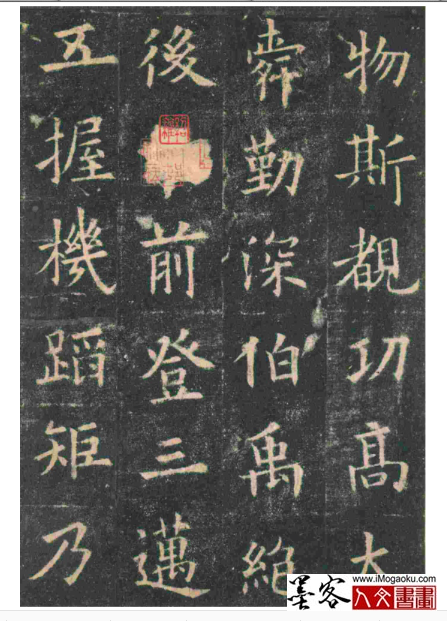 物斯覩功髙大
舜勤深伯禹絶
後前登三邁
五握機蹈矩乃
墨客
www.iMogaoku.com
人文書畫